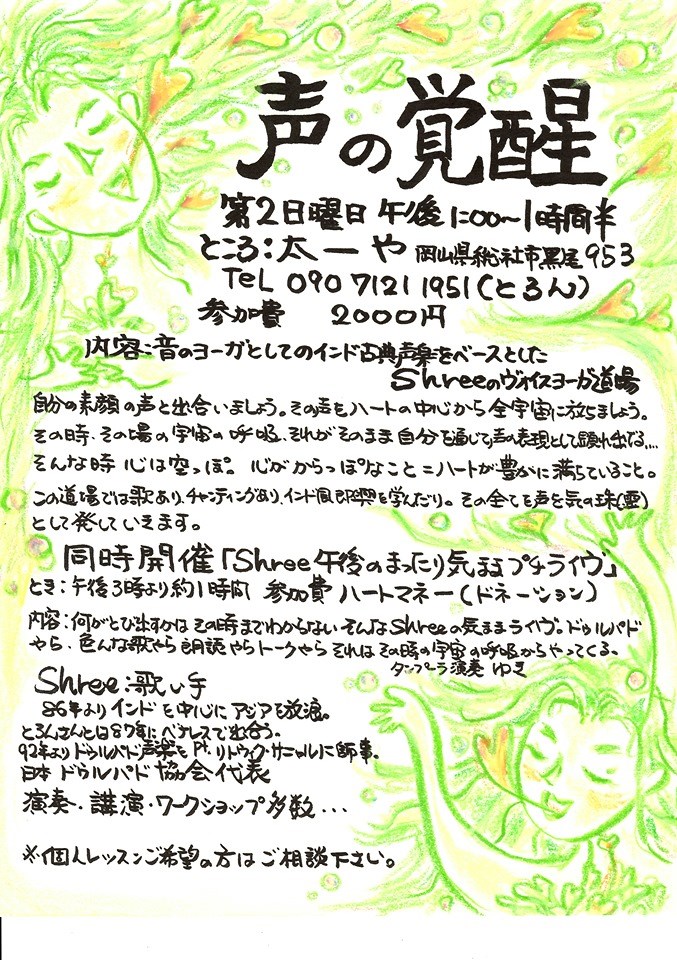 声の覚醒
第2日曜日 午後1:00〜1時間半
ところ:太一や 岡山県総社市黒尾953
TeL 090 7121 1951(とろん)
参加費 2000円
内容:音のヨーガとしてのインド古典声楽をベースとした
Shreeのヴォイスヨーガ道場
自分の素顔の声と出合いましょう。その声をハートの中心から全宇宙に放ちましょう。
その時、その場の宇宙の呼吸、それがそのまま自分を通じて声の表現として顕れ出でる...
そんな時 心は空っぽ。心がからっぽなこと=ハートが豊かに満ちていること。
この道場では歌あり、チャンティングあり、インド風即興を学んだり。その全てを声を気の珠(霊)
として発していきます。
同時開催「Shree午後のまったり気ままプチライヴ」
とき:午後3時より約1時間 参加費 ハートマネー(ドネーション)
内容:何がとび出すかは その時までわからない そんなShreeの気ままライヴ。ドゥルパド
やら、色んな歌やら朗読やらトークやら それは その時の宇宙の呼吸からやってくる。
タンプーラ演奏 ゆき
Shree:歌い手
86年よりインドを中心にアジアを放浪。
とろんさんとは87年にベナレスで出合う。
92年よりドゥルパド声楽をPt.リトウィク・サニャルに師事。
日本ドゥルパド協会代表
演奏・講演・ワークショップ多数...
※個人レッスンご希望の方はご相談下さい。